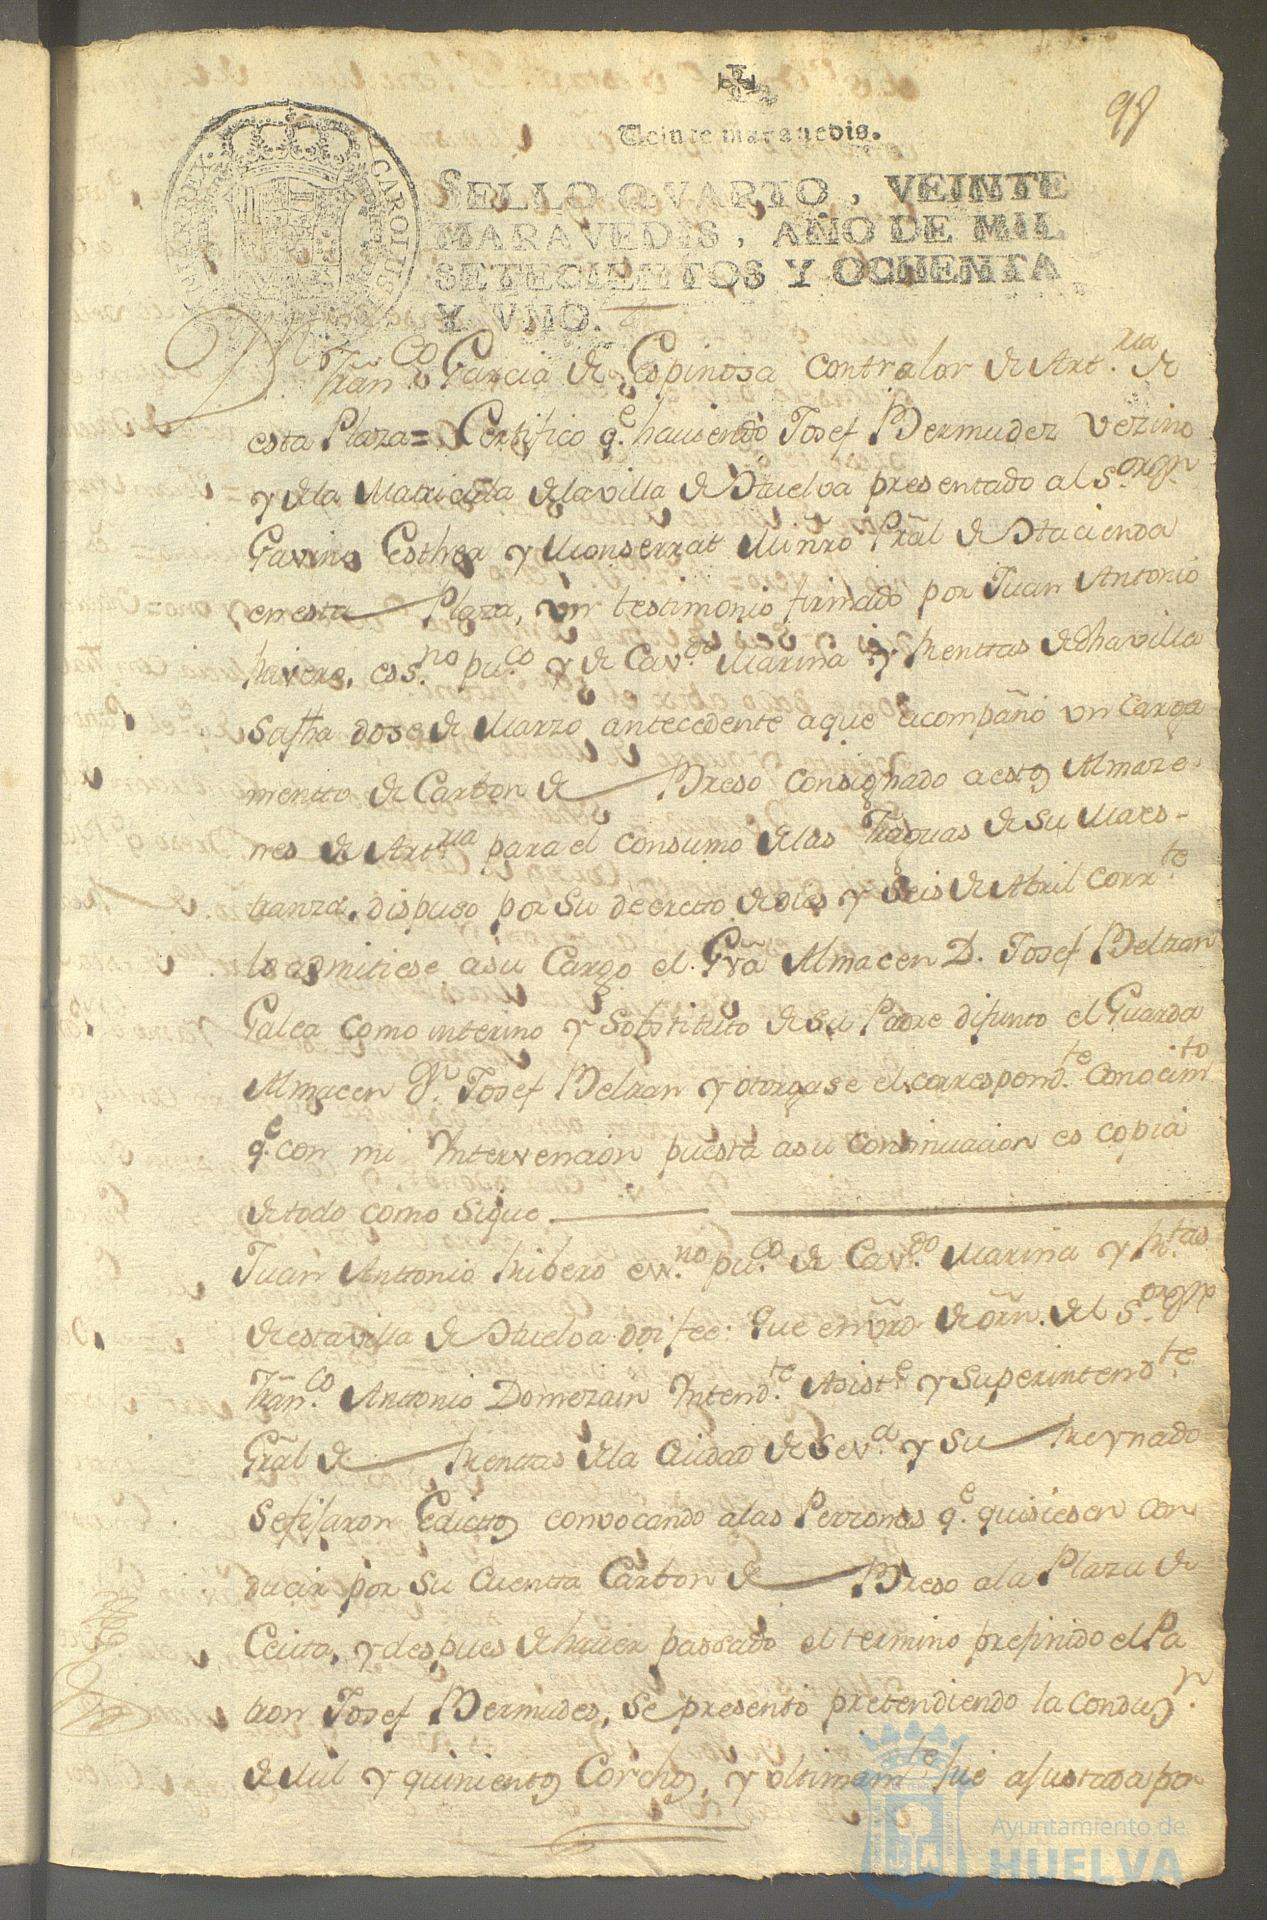 98
Veinte maravedis.
SELLO QVARTO, VEINTE
MARAVEDIS, AÑO DE MIL
SETECIENTOS Y OCHENTA
Y VNO.
CAROLUS
D.n Fran.co Garcia de Espinosa Contralor de Art.ria de
esta Plaza= Certifico q.e haviendo Josef Bermudez Vezino
y dela Matricula dela villa de Huelva presentado al S.or
Gavino Esther y Monserrat Minrõ Prãl de Hacienda
en esta Plaza, un testimonio firmado por Juan Antonio
Rivero, ess.no pu.co y de Cav.do Marina y Renttas de dha villa
Sa fha dose de Marzo antecedente a que acompañó un Carga
mentto de Carbon de Breso consignado a estos Almaze-
nes de Art.ria para el consumo de las Fraguas de su Maes-
tranza, dispuso por su decretto de dies y Seis de Abril Corr.te
lo admitiese a su Cargo el G.rda Almacen D. Josef Beltran
Galea como interino y Sobstituto de su Padre difunto el Guarda
Almacen D.n Josef Beltran y otorgase el correspond.te Conocim.to
q.e con mi Yntervencion puesta a su continuacion es copia
de todo como Sigue
Juan Anttonio Ribero ess.no pu.co de Cav.do Marina y R.tas
de esta villa de Huelva doi fee: Que en vrõ de orn. del S.or
Fran.co Antonio Domezain Yntend.te Asist.e y Superintend.te
Grãl de Renttas dela Ciudad de Sev.a y su Reynado
Se fijaron Edictos convocando a las Perzonas q.e quisiesen Con
ducir por su Cuentta Carbon de Breso a la Plaza de
Ceuta, y despues de haver passado el termino prefinido el Pa
tron Josef Bermudes, Se presentó pretendiendo la Conduz.n
de Mil y quinientos Corchos, y ultimam.te fue ajustada por
Ayuntamiento de
HUELVA